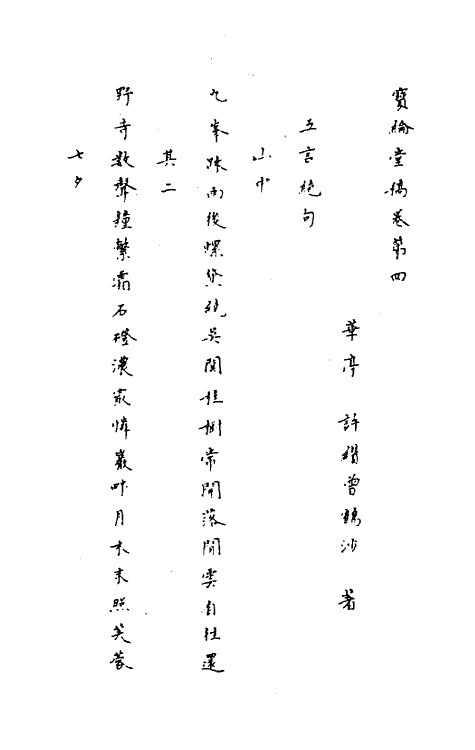 寶綸堂稿卷第四
華亭 許纘曾鶴沙 著
五言絕句
山中
九峯疎雨後螺黛繞吳関桂樹常開落閒雲自往還
其二
野寺數聲鐘繁霜石磴濃最憐巖畔月木末照芙蓉
七夕